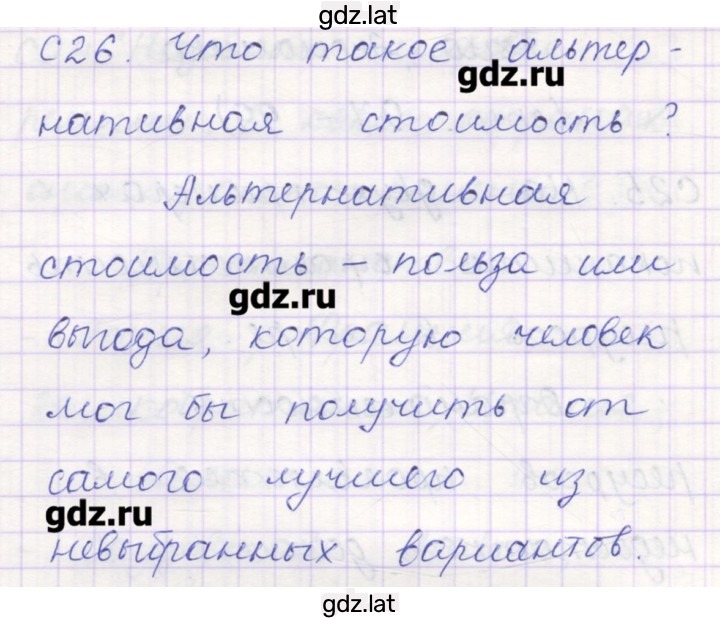 gdz.lat
С26. Что такое альтер-
gdz.ru
нативная стоимость?
Альтернативная
стоимость – польза или
gdz.ru
выгода, которую человек
мог бы получить от
самого лучшего из
gdz.ru
невыбранных вариантов.
gdz.lat